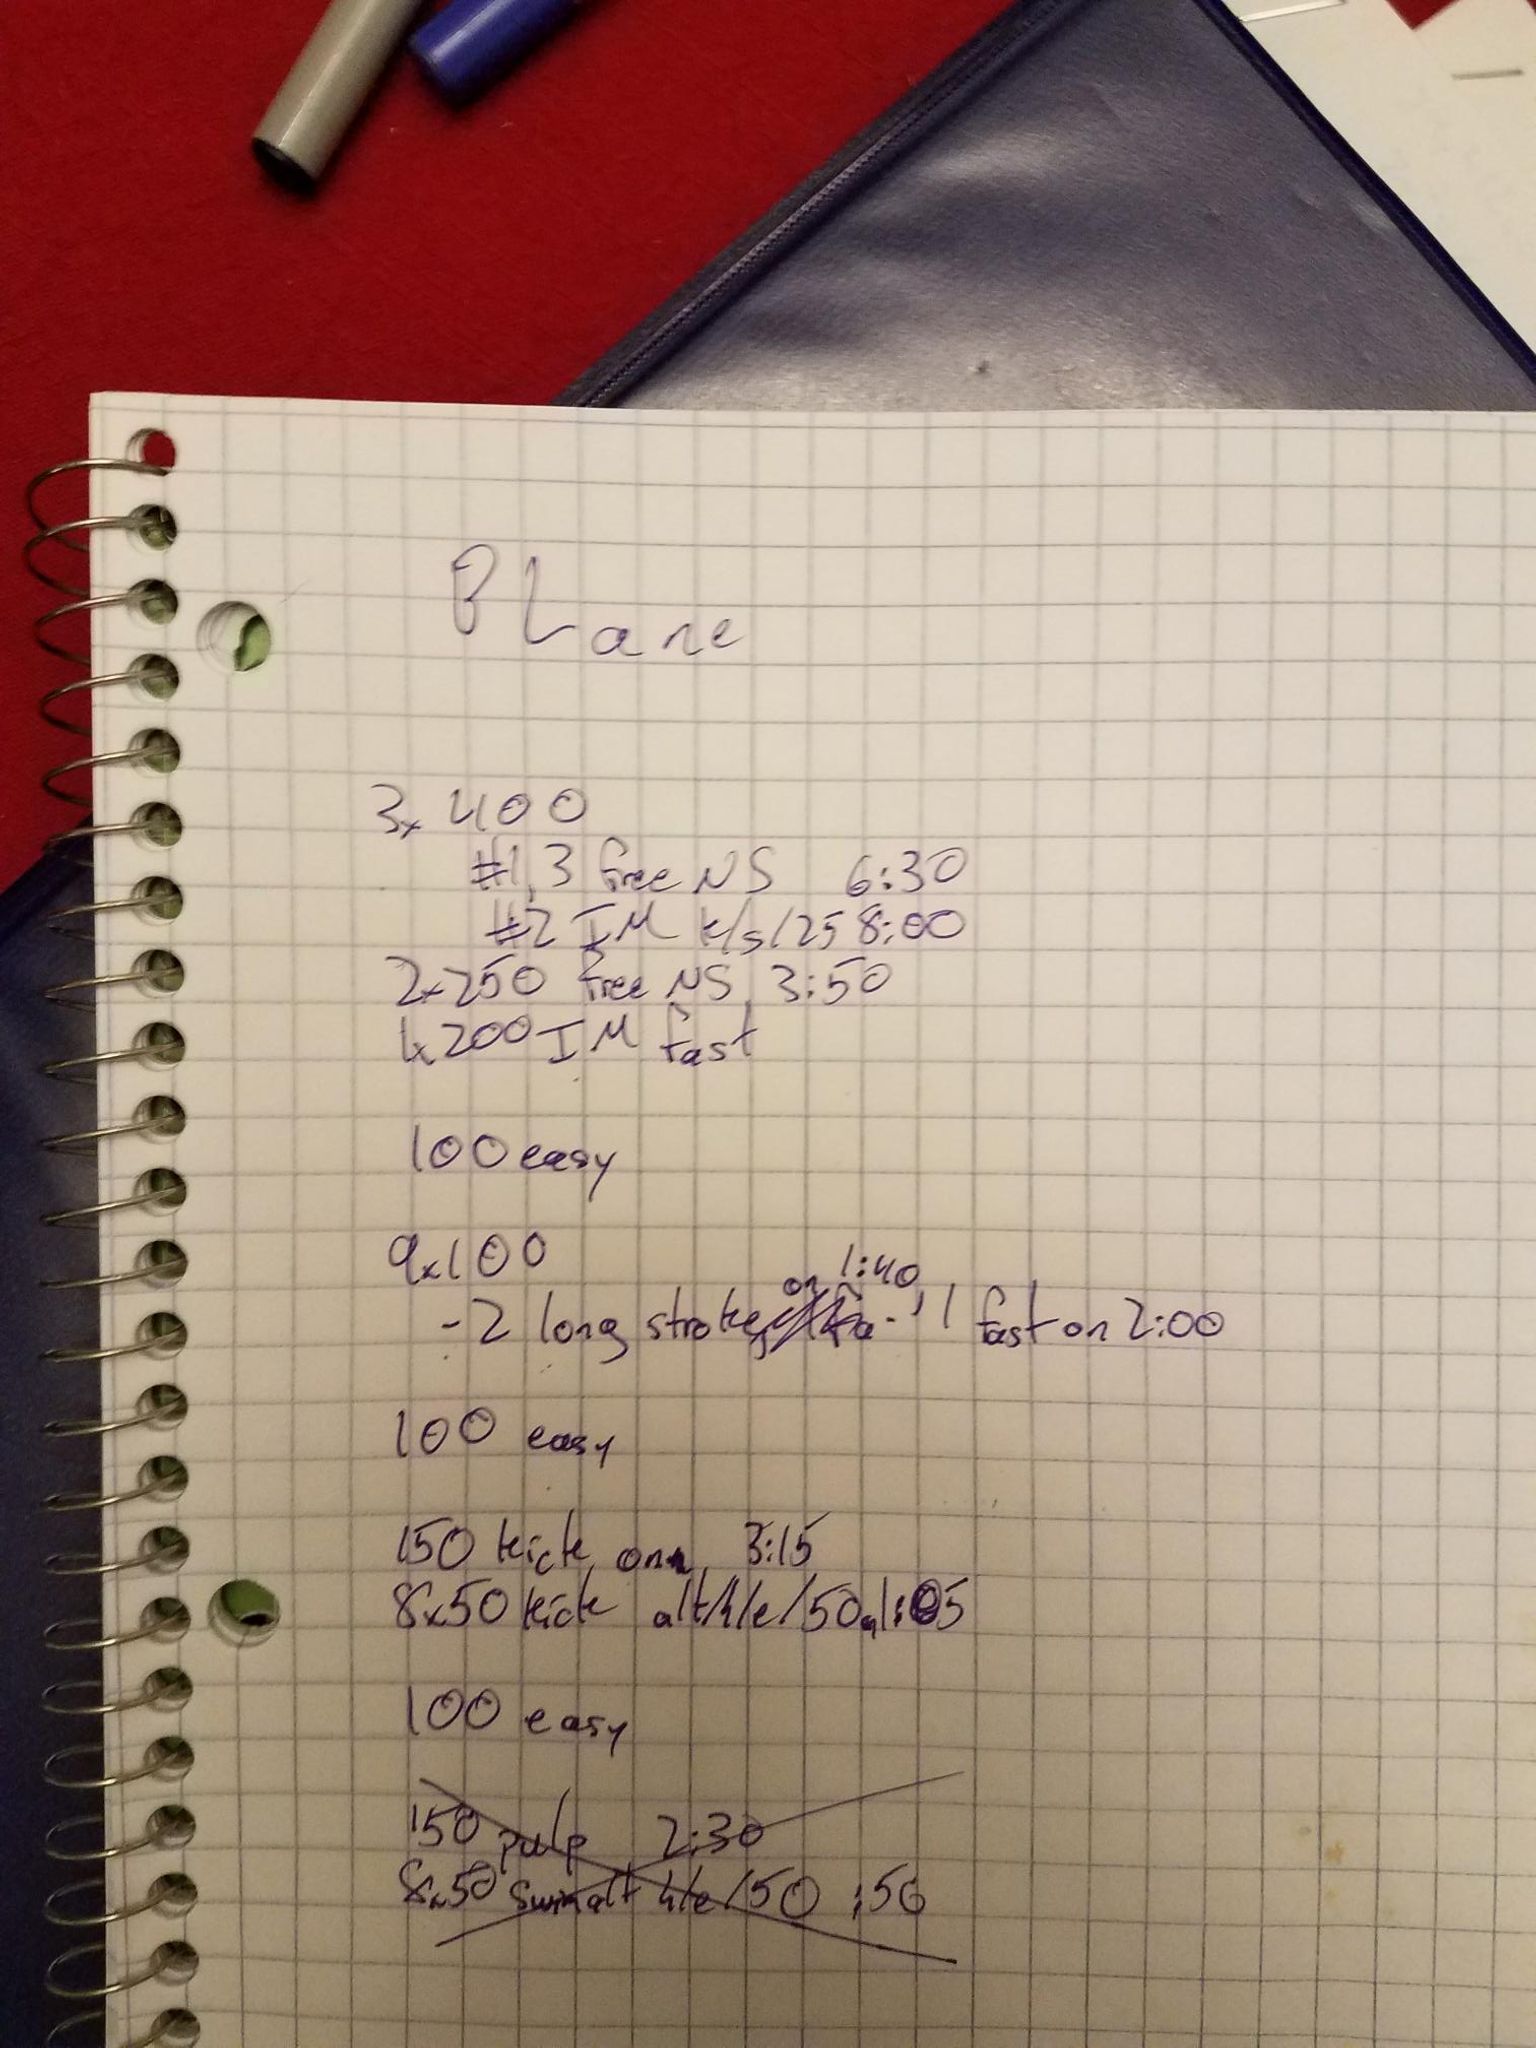 B Lane
3x 400
#1,3 free NS 6:30
#2 IM k/s/25 8:00
2x250 free NS 3:50
1x200 IM fast
100 easy
9x100
on 1:40
-2 long strokes, 1 fast on 2:00
100 easy
150 kick on 3:15
8x50 kick alt/h/e/50 1:05
100 easy
150 pulp 2:30
8x50 swim alt h/e/50 :50